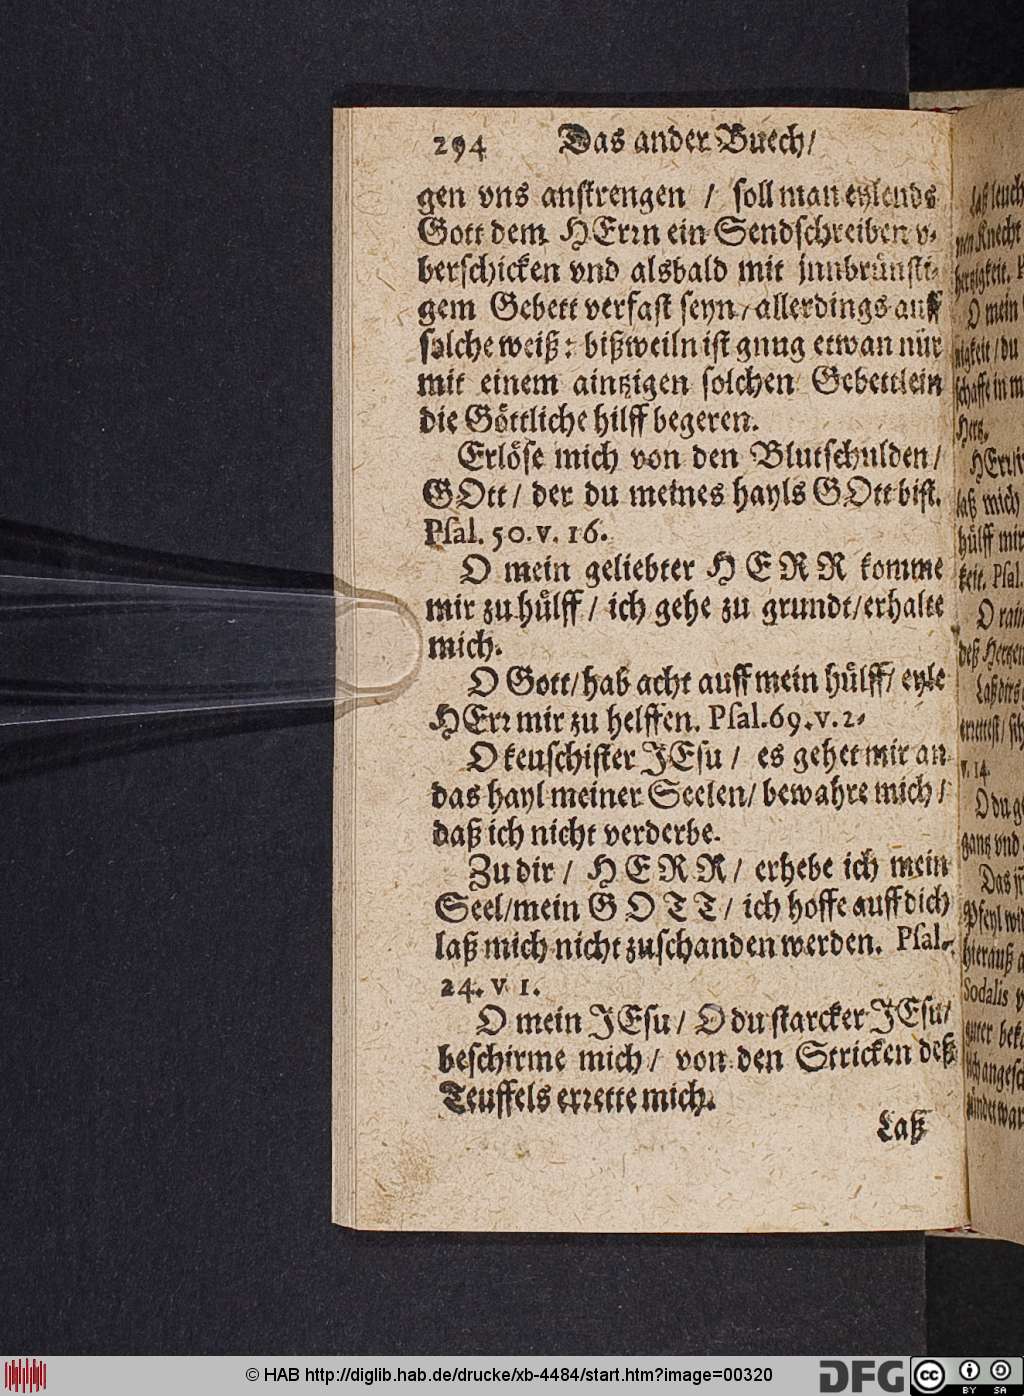 294 Das ander Buech/
gen vns anstrengen / soll man eylends
Gott dem HErrn ein Sendschreiben v-
berschicken vnd alsbald mit jnnbrünsti-
gem Gebett verfast seyn/ allerdings auff
solche weiß: bißweiln ist gnug etwan nür
mit einem aintzigen solchen Gebettlein
die Göttliche hilff begeren.
Erlöse mich von den Blutschulden/
GOtt/ der du meines hayls GOtt bist.
Psal. 50. v. 16.
O mein geliebter HERR komme
mir zu hülff/ ich gehe zu grundt/erhalte
mich.
O Gott/hab acht auff mein hülff/ eyle
HErr mir zu helffen. Psal.69.v.2.
O keuschister JEsu / es gehet mir an
das hayl meiner Seelen/ bewahre mich/
daß ich nicht verderbe.
Zu dir / HERR/ erhebe ich mein
Seel/mein GOTT/ ich hoffe auff dich
laß mich nicht zuschanden werden. Psal.
24. v 1.
O mein JEsu/ O du starcker JEsu/
beschirme mich/ von den Stricken deß
Teuffels errette mich.
Laß
nen Knecht
O mein
nigkeit/du
schaffe in m
Hertz.
HErr
laß mich
hülff mir
keit. Psal.
O rain
deß Hertzen
errettest/
v. 14.
O du g
gantz vnd
Das
Pfeyl
hierauß
Sodalis
© HAB http://diglib.hab.de/drucke/xb-4484/start.htm?image=00320
DFG
cc BY SA